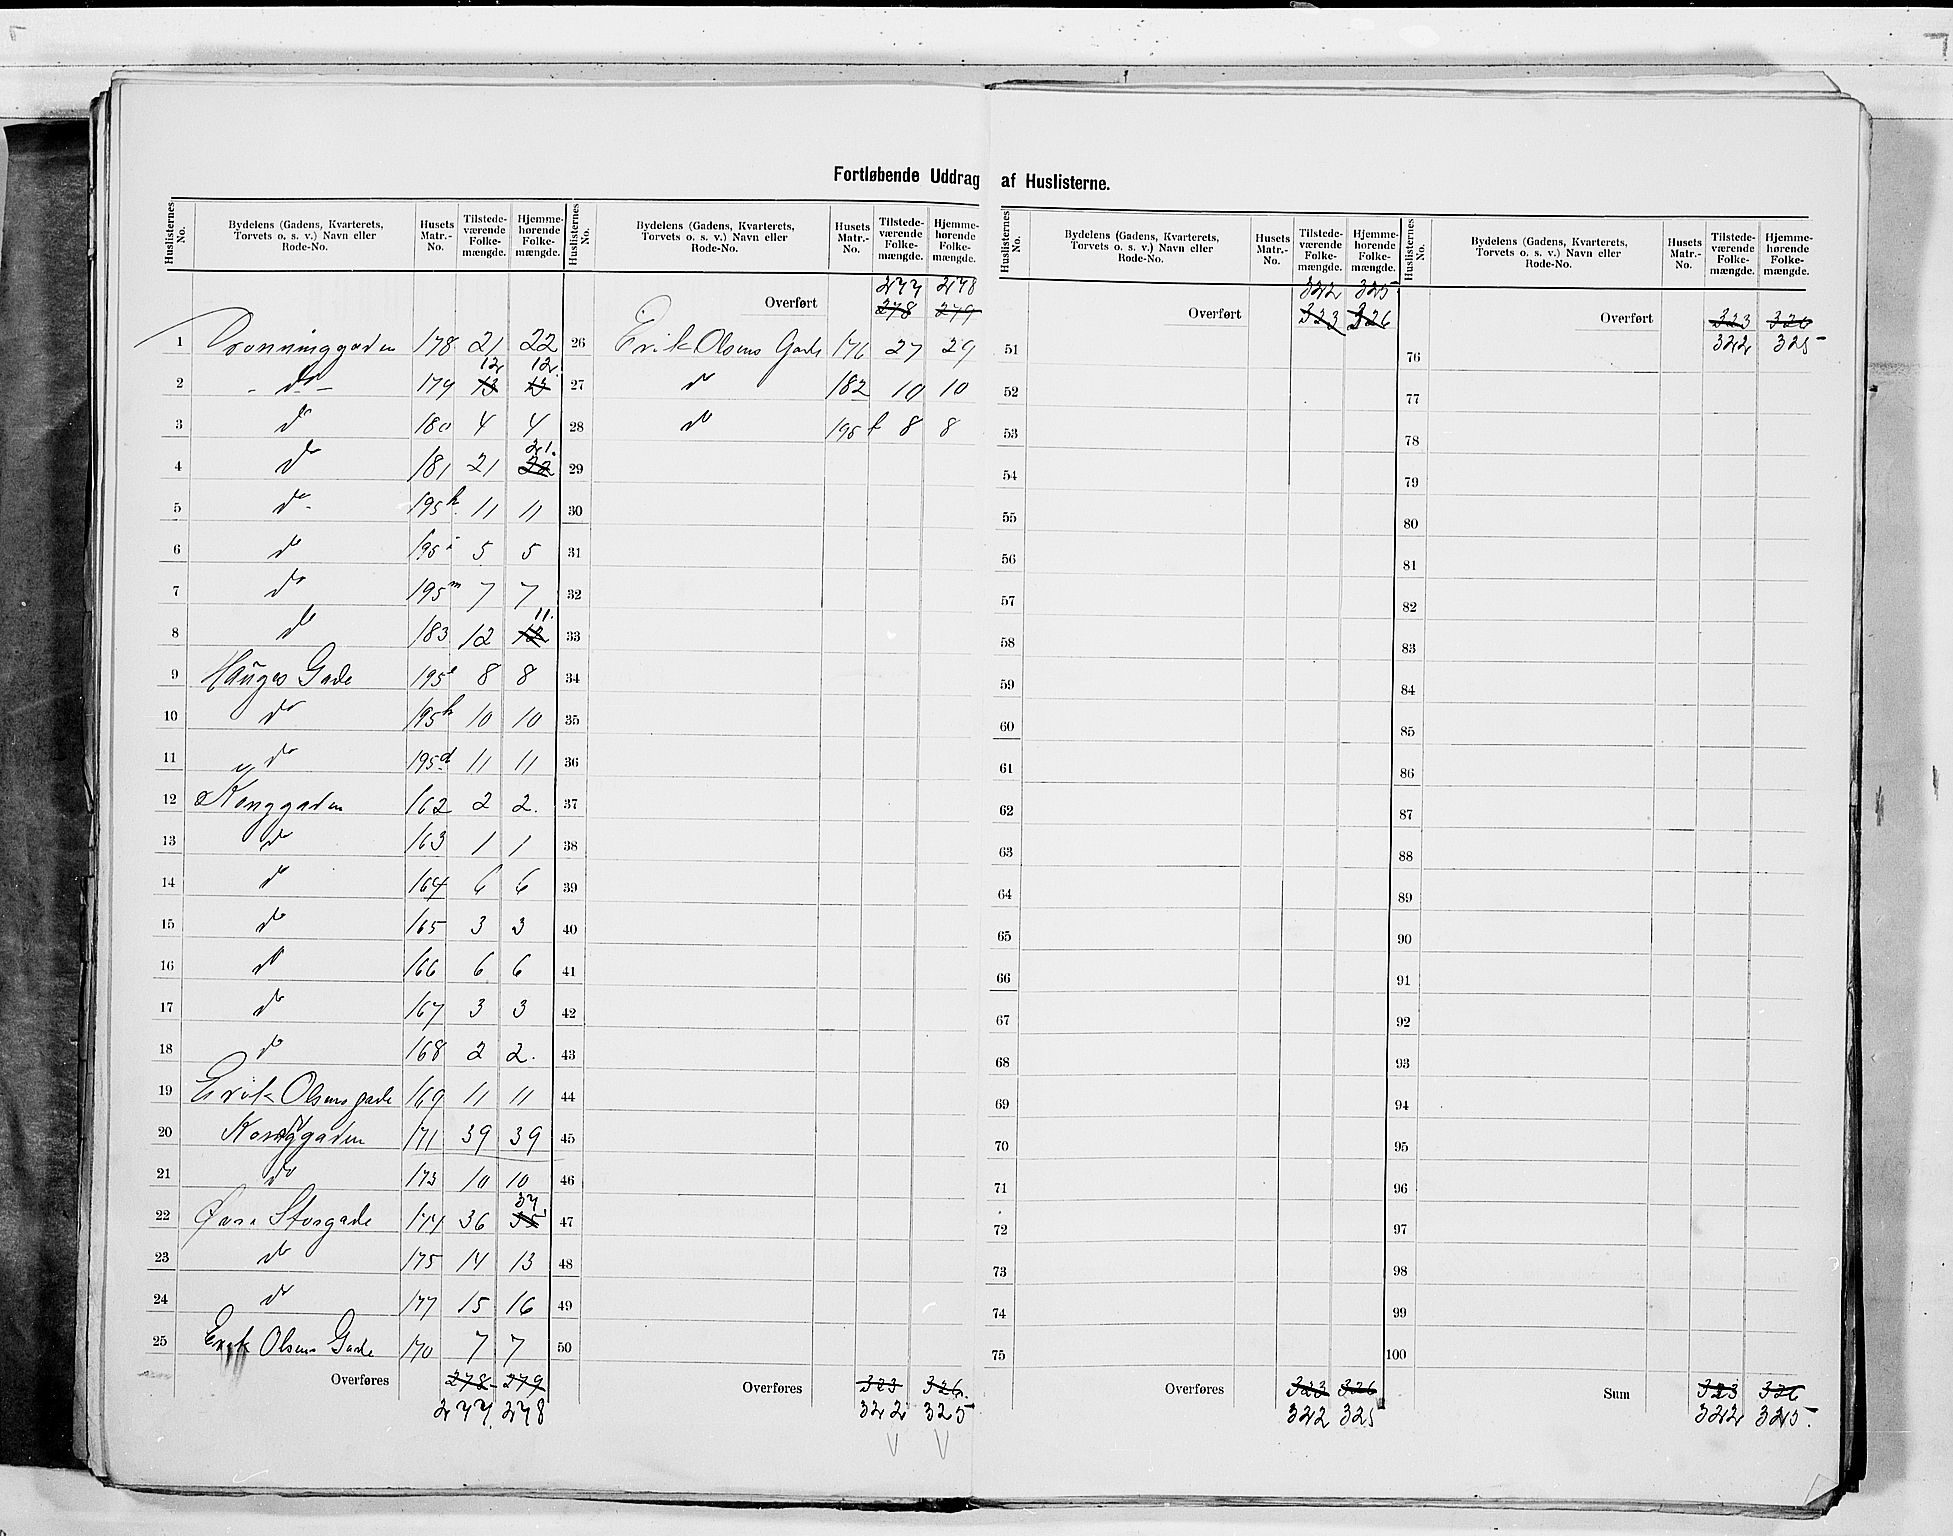 Fortløbende Uddrag af Huslisterne.
Huslisternes No. | Bydelens (Gadens, Kvarterets, Torvets o. s. v.) Navn eller Rode-No. | Husets Matr.-No. | Tilstede-værende Folke-mængde. | Hjemme-hørende Folke-mængde.
1 Dronninggaden 178 21 22
2 - do - 179 13 12 13 12.
3 do 180 4 4
4 do 181 21 22 21.
5 do - 195 k. 11 11
6 do 195 i 5 5
7 do 195 m 7 7
8 do 183 12 12 11.
9 Hauges Gade 195 e 8 8
10 do 195 h 10 10
11 do 195 d 11 11
12 Konggaden 162 2 2.
13 do 163 1 1
14 do 164 6 6
15 do 165 3 3
16 do 166 6 6
17 do 167 3 3
18 do 168 2 2.
19 Erik Olsensgade 169 11 11
20 Konggaden 171 39 39
21 do 173 10 10
22 Øvre Storgade 174 36 35 37
23 do 175 14 13
24 do 177 15 16
25 Erik Olsens Gade 170 7 7
Overføres 278 279
277. 278
Huslisternes No. | Bydelens (Gadens, Kvarterets, Torvets o. s. v.) Navn eller Rode-No. | Husets Matr.-No. | Tilstede-værende Folke-mængde. | Hjemme-hørende Folke-mængde.
277 278
Overført 278 279
26 Erik Olsens Gade 176 27 29
27 do 182 10 10
28 do 195 f 8 8
29
30
31
32
33
34
35
36
37
38
39
40
41
42
43
44
45
46
47
48
49
50
Overføres 323 326.
322 325
Huslisternes No. | Bydelens (Gadens, Kvarterets, Torvets o. s. v.) Navn eller Rode-No. | Husets Matr.-No. | Tilstede-værende Folke-mængde. | Hjemme-hørende Folke-mængde.
322 325
Overført 323 326
51
52
53
54
55
56
57
58
59
60
61
62
63
64
65
66
67
68
69
70
71
72
73
74
75
Overføres 323 326
322 325
Huslisternes No. | Bydelens (Gadens, Kvarterets, Torvets o. s. v.) Navn eller Rode-No. | Husets Matr.-No. | Tilstede-værende Folke-mængde. | Hjemme-hørende Folke-mængde.
Overført 323 326
322 325
76
77
78
79
80
81
82
83
84
85
86
87
88
89
90
91
92
93
94
95
96
97
98
99
100
Sum 323 326
322 325.